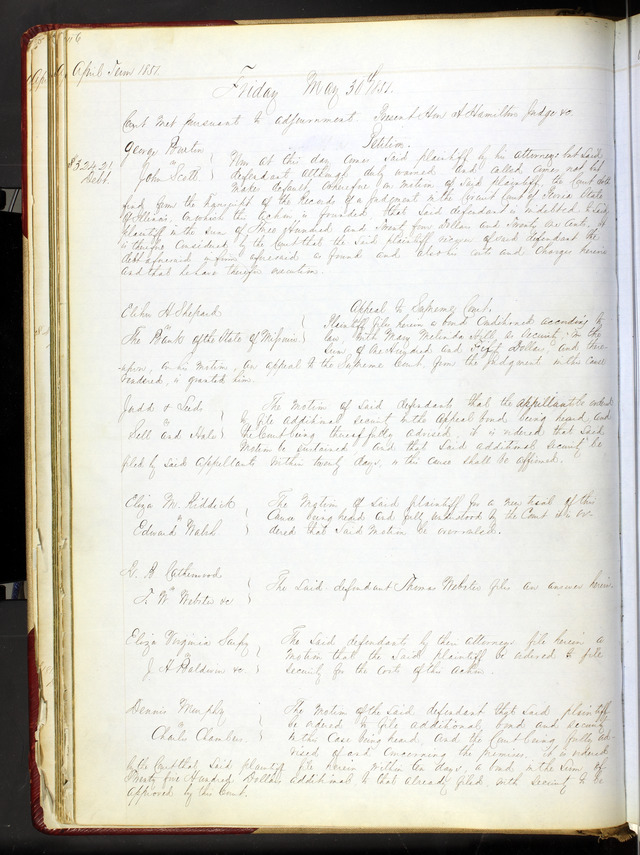 6
April Term 1851.
Friday May 30th 1851.
Court met pursuant to adjournment. Present Hon A Hamilton Judge &c
George Partin
vs
John Scott
$324.21
Debt.
Petition.
Now at this day comes said plaintiff by his attorneys but said
defendant although duly warned and called comes not but
makes default, wherefore on motion of said plaintiff, the Court doth
find from the transcript of the Records of a Judgment in the Circuit Court of State
of Illinois, on which the action is founded, that said defendant is indebted to said
plaintiff in the sum of Three Hundred and Twenty four Dollars and Twenty one Cents, it
is therefore Considered by the Court that the said plaintiff recover of said defendant the
debt aforesaid in form aforesaid as found and also his costs and Charges herein
and that he have therefor execution.
Elihu H Shepard
vs
The Bank of the State of Missouri
Appeal to Supreme Court.
Plaintiff files herein a bond Conditioned according to
law, with Mary Malinda Hall, as Security, in the
Sum of One Hundred and Fifty Dollars, and there
upon, on his motion, an appeal to the Supreme Court, from the judgment in this case
rendered, is granted him.
Judd &
vs
Sell and Hale
The motion of said defendants that the appellant be ordered
to file additional security to the Appeal bond being heard, and
the Court being thereof fully advised, it is ordered that said
Motion be sustained, and that said additional security be
filed by said Appellants within twenty days, or the cause shall be affirmed.
Eliza M. Riddick
vs
Edward Walsh
The motion of said plaintiff for a new trial of this
Cause being heard and fully understood by the Court it is or-
dered that said Motion be overruled.
vs
T. W. Webster &c
The said defendant Thomas Webster files an answer herein.
Eliza Virginia
vs
J. H Baldwin &c.
The said defendants by their attorneys file herein a
Motion that the said plaintiff be ordered to file
security for the costs of this action.
Dennis Murphy
vs
Charles Chambers
The motion of the said defendant that said plaintiff
be ordered to file additional bond and security
in the Case being heard, and the Court being fully ad-
vised of and concerning the premises, it is ordered
by the Court that said plaintiff file herein within ten days, a bond in the sum of
Twenty five Hundred Dollars additional to that already filed, with security to be
approved by this Court.